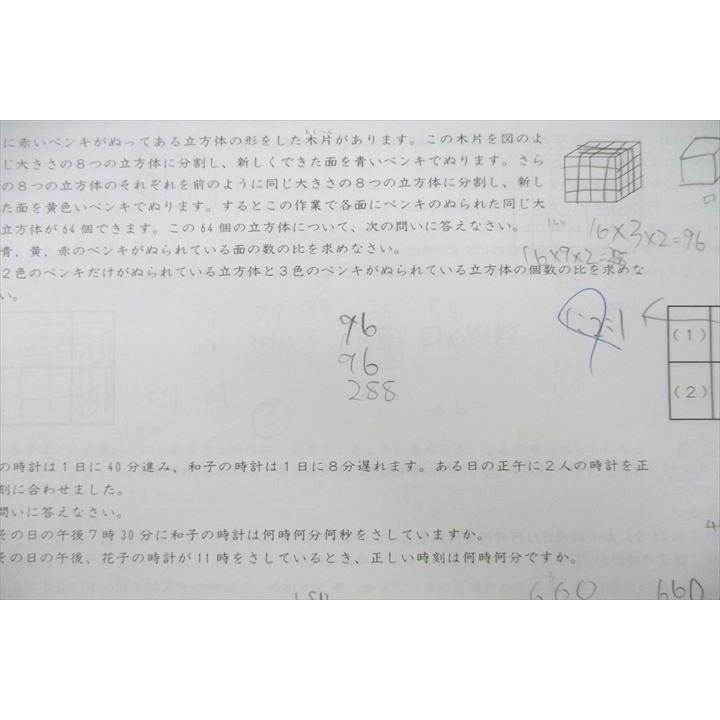 に赤いペンキがぬってある立方体の形をした木片があります。この木片を図のよ
じ大きさの８つの立方体に分割し、新しくできた面を青いペンキでぬります。さら
の８つの立方体のそれぞれを前のように同じ大きさの８つの立方体に分割し、新し
た面を黄色いペンキでぬります。するとこの作業で各面にペンキのぬられた同じ大
立方体が64個できます。この64個の立方体について、次の問いに答えなさい。
16×3×2=96
青、黄、赤のペンキがぬられている面の数の比を求めなさい。
16×9×2=288
２色のペンキだけがぬられている立方体と３色のペンキがぬられている立方体の個数の比を求めな
い。
96
96
288
1:2:1
(1)
(2)
の時計は１日に40分進み、和子の時計は１日に８分遅れます。ある日の正午に２人の時計を正
刻に合わせました。
問いに答えなさい。
その日の午後７時30分に和子の時計は何時何分何秒をさしていますか。
その日の午後、花子の時計が11時をさしているとき、正しい時刻は何時何分ですか。
4
660